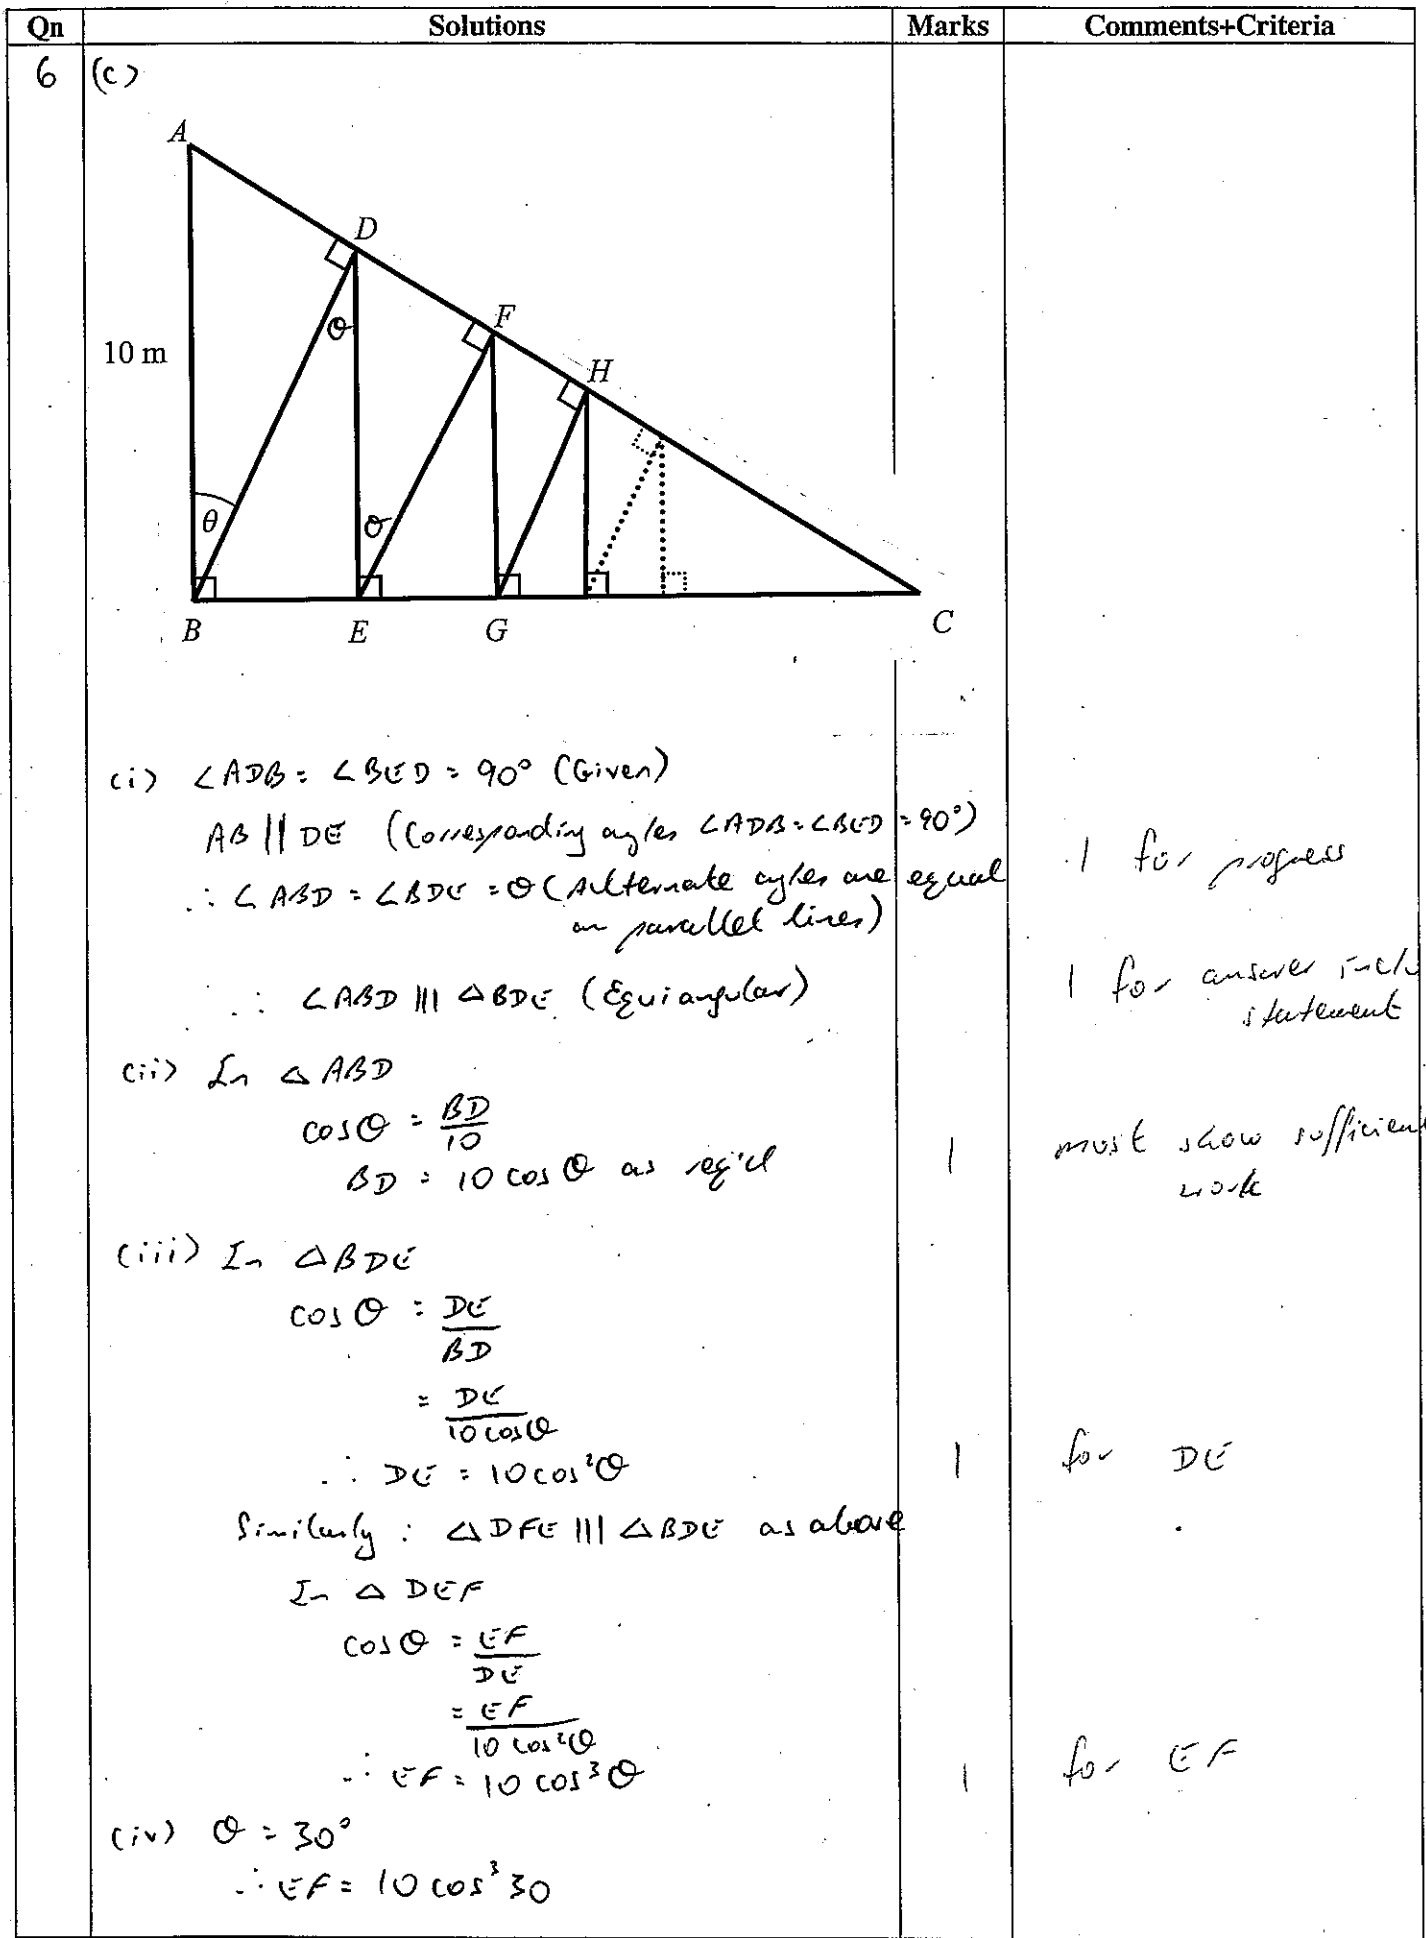 Qn Solutions Marks Comments+Criteria
6 (c)
A
D
θ
F
10 m
H
θ
θ
B E G C
(i) ∠ADB = ∠BED = 90° (Given)
AB || DE (Corresponding angles ∠ADB = ∠BED = 90°)
1 for progress
∴ ∠ABD = ∠BDE = θ (Alternate angles are equal
on parallel lines)
∴ ∠ABD ||| ΔBDE (Equiangular)
1 for answer incl
statement
(ii) In Δ ABD
cos θ = BD/10
BD = 10 cos θ as req'd
1 must show sufficient
work
(iii) In ΔBDE
cos θ = DE/BD
= DE/10 cos θ
∴ DE = 10 cos²θ 1 for DE
Similarly : ΔDFE ||| ΔBDE as above
In Δ DEF
cos θ = EF/DE
= EF/10 cos²θ
∴ EF = 10 cos³θ 1 for EF
(iv) θ = 30°
∴ EF = 10 cos³ 30